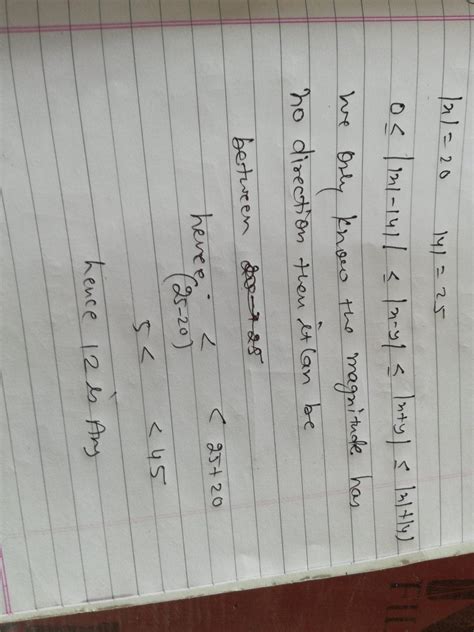 |x| = 20 |y| = 25
0 ≤ ||x| - |y|| ≤ |x-y| ≤ |x+y| ≤ |x|+|y|
we only know the magnitude has
no direction then it can be
between 25
hence < < 25+20
(25-20)
5 < < 45
hence 12 is Ans